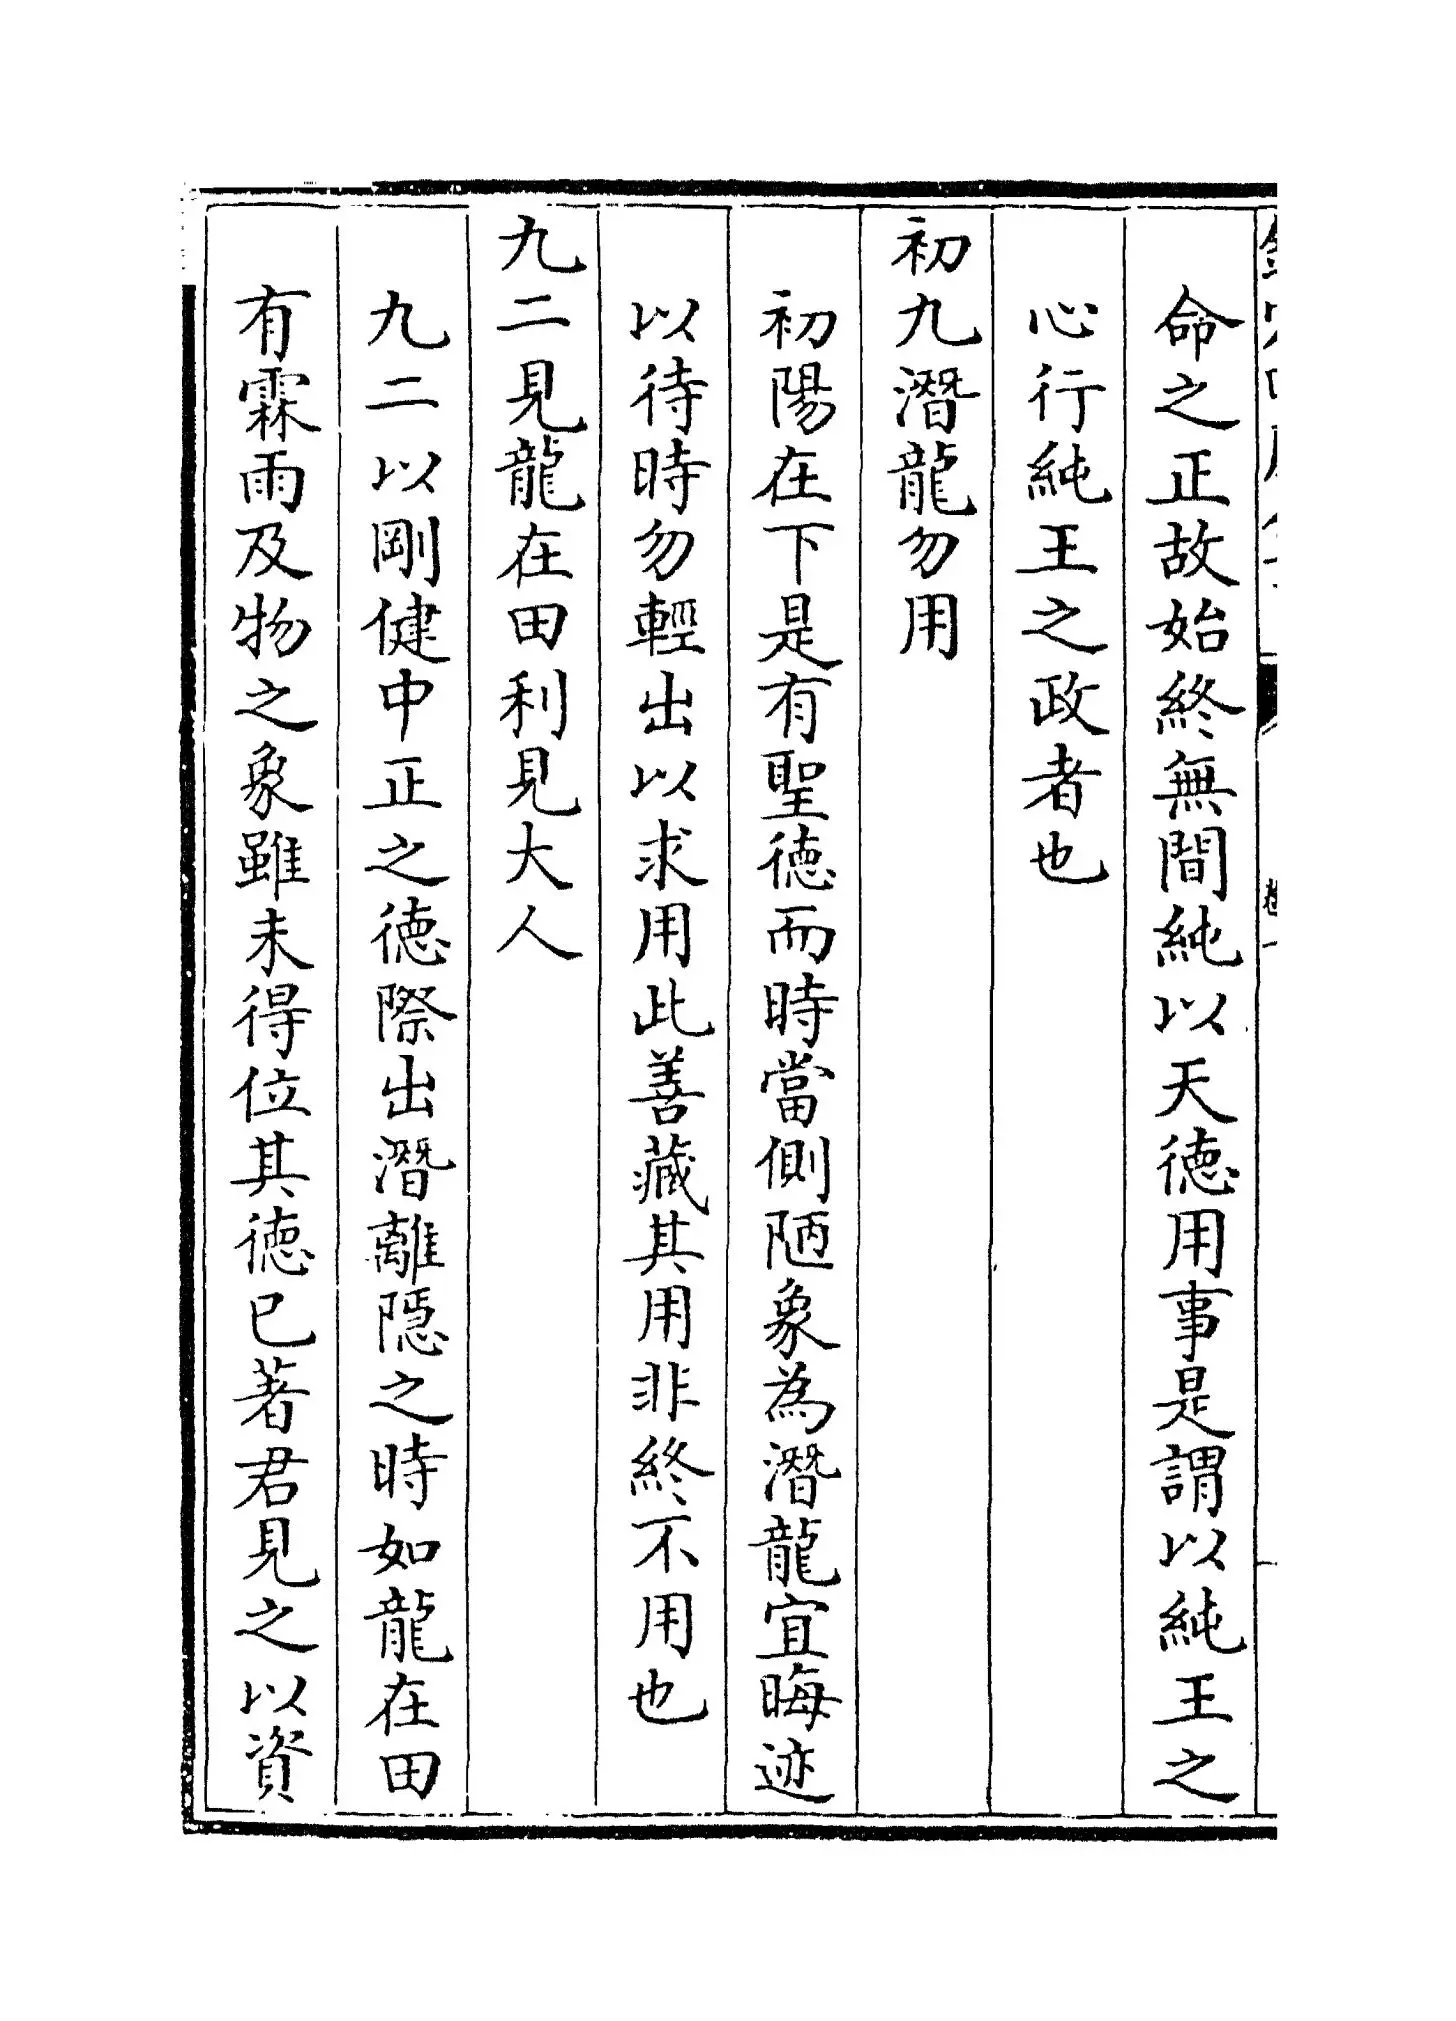 命之正故始終無間純以天徳用事是謂以純王之
心行純王之政者也
初九潛龍勿用
初陽在下是有聖徳而時當側陋象為潛龍宜晦迹
以待時勿輕出以求用此善藏其用非終不用也
九二見龍在田利見大人
九二以剛健中正之徳際出潛離隱之時如龍在田
有霖雨及物之象雖未得位其徳已著君見之以資